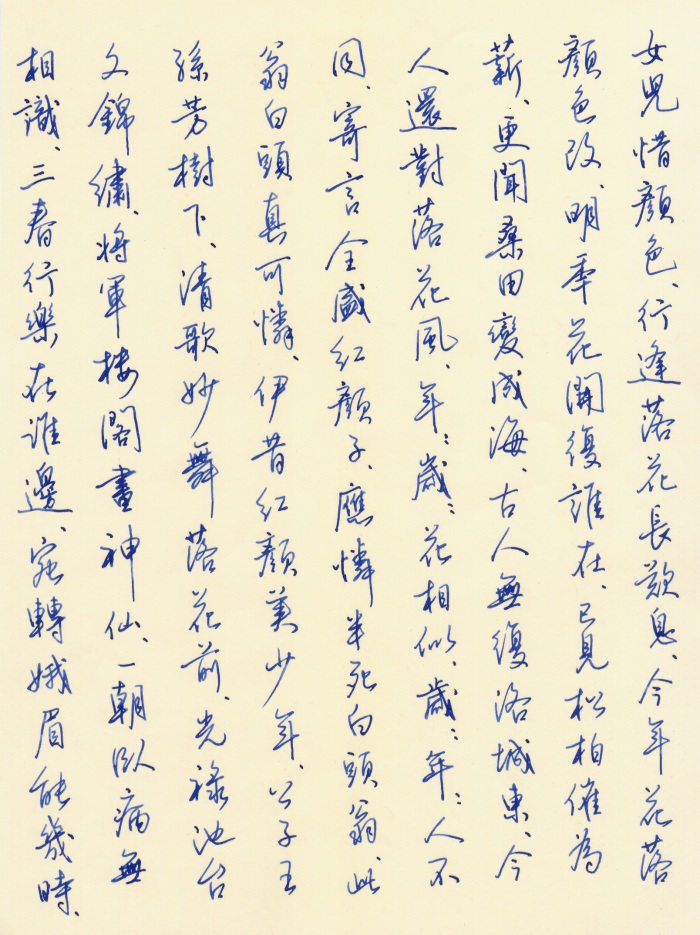 女兒惜顏色、行逢落花長歎息、今年花落
顏色改、明年花開復誰在、已見松柏催為
薪、更聞桑田變成海、古人無復洛城東、今
人還對落花風、年〻歲〻花相似、歲〻年〻人不
同、寄言全盛紅顏子、應憐半死白頭翁、此
翁白頭真可憐、伊昔紅顏美少年、公子王
孫芳樹下、清歌妙舞落花前、光祿池台
文錦繡、將軍樓閣畫神仙、一朝臥病無
相識、三春行樂在誰邊、宛轉娥眉能幾時、